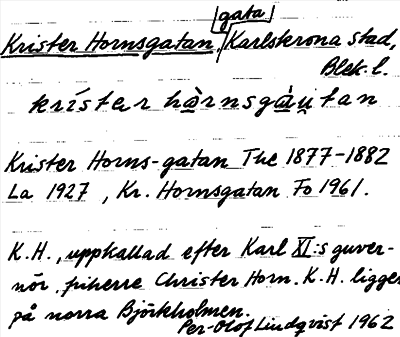 gata
Krister Hornsgatan, Karlskrona stad,
Blek. l.
krístər hὰ̀rnsgá̀u̯tan
Krister Horns-gatan The 1877-1882
La 1927 , Kr. Hornsgatan Fo 1961.
K.H., uppkallad efter Karl XI:s guver-
nör, friherre Christer Horn. K.H. ligger
på norra Björkholmen.
Per-Olof Lindqvist 1962